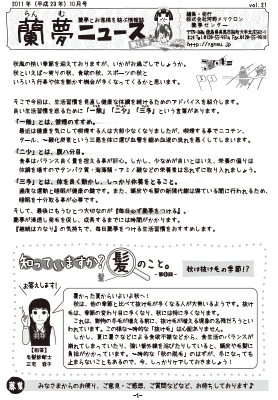 2011年(平成23年)10月号
vol.21
らん む
蘭夢ニュース
蘭夢とお客様を結ぶ情報誌
編集・発行
株式会社河野メリクロン
蘭夢センター
http://ranmu.jp
秋風の快い季節を迎えておりますが、いかがお過ごしでしょうか。
秋といえば…実りの秋、食欲の秋、スポーツの秋と
いろいろ行事や体を動かす機会が多くなってくるかと思います。
そこで今回は、生活習慣を見直し健康な体調を続けるためのアドバイスを紹介します。
良い生活習慣を送るために「一無」「二少」「三多」という言葉があります。
「一無」とは、禁煙のすすめ。
最近は健康を気にして喫煙する人は大部少なくなりましたが、喫煙する事でニコチン、
タール、一酸化炭素という三悪を体に運び血管を縮め血液の流れを悪くしてしまいます。
「二少」とは、腹八分目。
食事はバランス良く量を控える事が肝心。しかし、少なめが良いとはいえ、栄養の偏りは
体調を壊すのでタンパク質・海藻類・アミノ酸などの栄養素は忘れずに取り入れましょう。
「三多」とは、体を良く動かし、しっかり休養をとること。
適度な運動と睡眠が健康の鍵です。また、健康や毛髪の新陳代謝は寝ている間に行われるため、
睡眠を十分取る事が必要です。
そして、最後にもうひとつ大切なのが【毎日必ず蘭夢をつける】。
蘭夢が浸透し発毛を促し、成長するまでには時間がかかります。
【継続は力なり】の気持ちで、毎日蘭夢をつける生活習慣をおすすめします。
知っていますか?髪のこと。
秋は抜け毛の季節!?
お答えします!
暑かった夏からいよいよ秋へ!
秋は、他の季節と比べて抜け毛が多くなる人が大勢いるようです。抜け
毛は、季節の変わり目に多くなり、秋には特に多くなります。
これは、動物の冬毛が増える前に、夏毛が抜け替る現象の名残だろうと
いわれています。この様な一時的な「抜け毛」は心配ありません。
しかし、夏に暑さなどによる食欲不振などから、食生活のバランスが
崩れてしまっていたり、強い紫外線を浴びたりしていると、頭皮や毛髪に
負担がかかっています。一時的な「秋の脱毛」のはずが、冬になっても
止まらないこともあるので、今、しっかりケアしておきましょう!
【回答】
毛髪診断士
三宅 容子
募集
みなさまからのお便り、ご意見・ご感想、ご質問などなど、お待ちしております♪
-1-